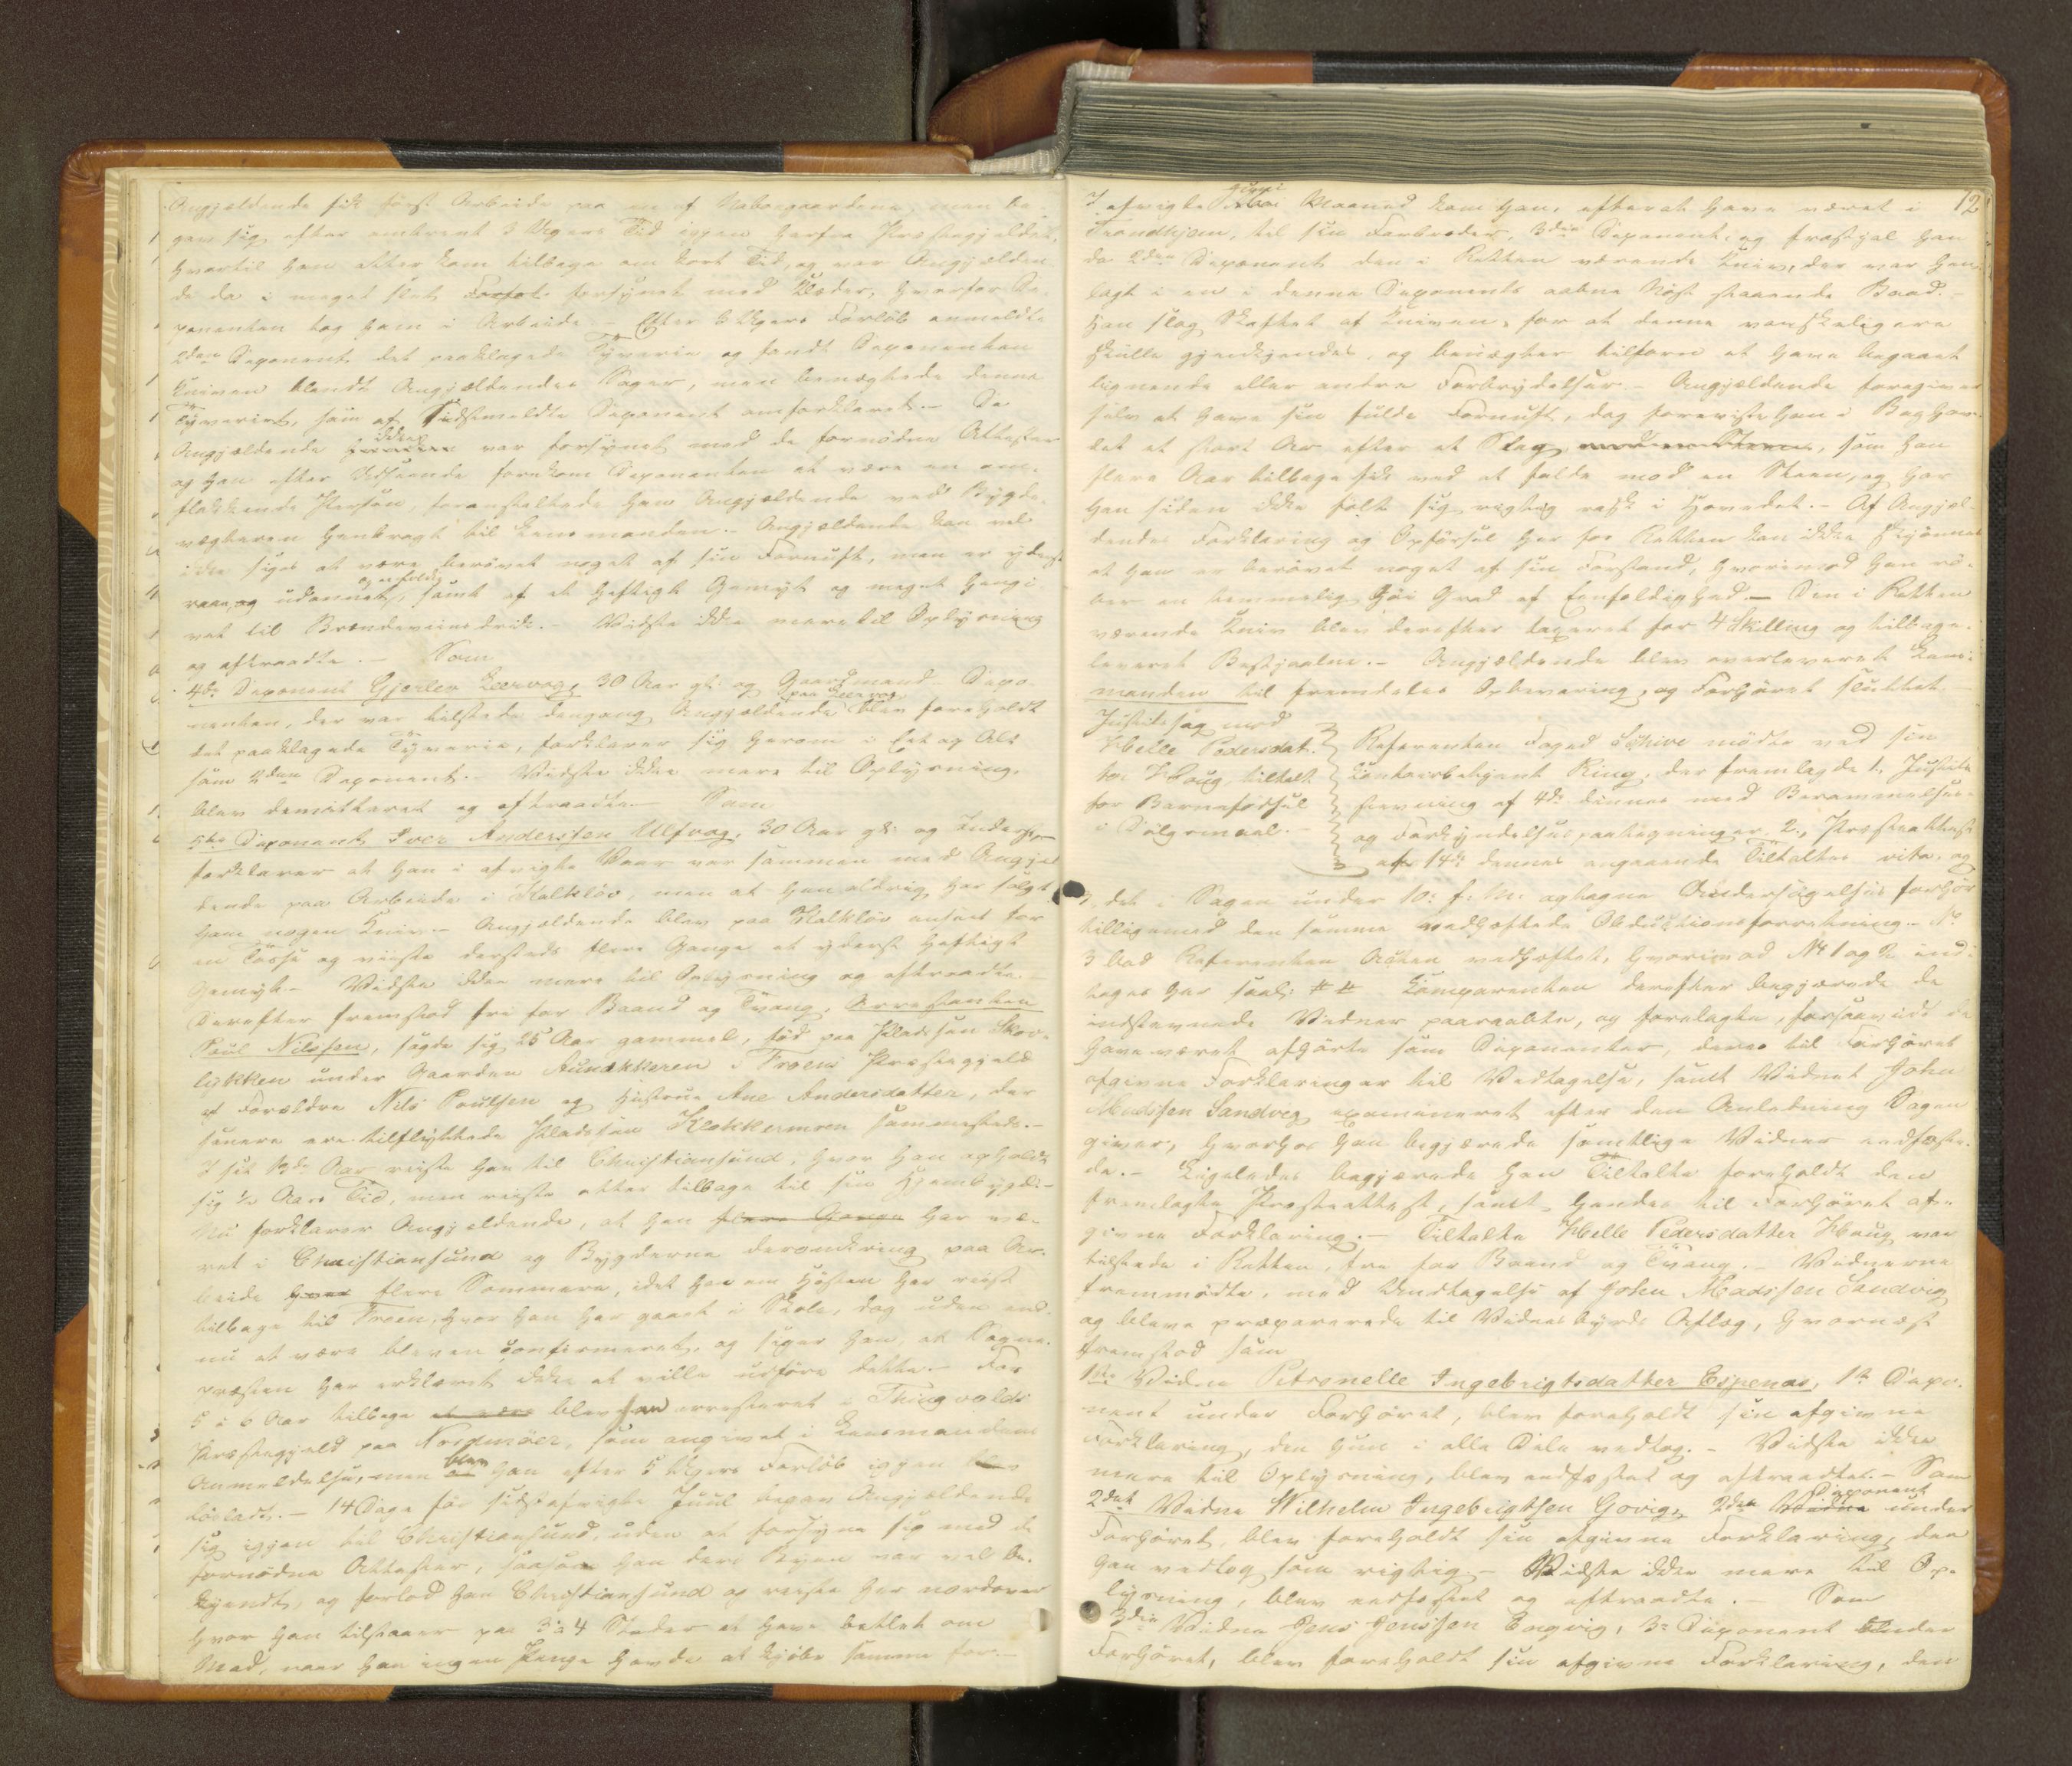 Angjældende fik først Arbeide paa en af Nabogaardene, men be-
gav sig efter omtrent 3 Ugers Tid igjen herfra Præstegjeldet,
hvortil han atter kom tilbage om kort Tid, og var Angjælden-
de da i meget slet forsynet med Klæder, hvorfor De-
ponenten tog ham i Arbeide. – Efter 3 Ugers Forløb anmeldte
2den Deponent det paaklagede Tyverie, og fandt Deponenten
Kniven blandt Angjældendes Sager, men benægtede denne
Tyveriet, som af sidstmeldte Deponent omforklaret. – Da
Angjældende ikke var forsynet med de fornødne Attester
og han efter Udseende forekom Deponenten at være en om-
flakkende Person, foranstaltede han Angjældende ved Bygde-
vægteren henbragt til Lensmanden. – Angjældende kan vel
ikke siges at være berøvet noget af sin Fornuft, men er yderst
raae, og udannet, og eenfoldig samt af et heftigt Gemyt og meget hengi-
vet til Brændeviinsdrik. – Vidste ikke mere til Oplysning
og aftraadte. – Som
4de Deponent Gjerlev Leervog, 30 Aar gl. og Gaardmand. Depo-
nenten, der var tilstede dengang Angjældende paa Leervog blev foreholdt
det paaklagede Tyverie, forklarer sig herom i Eet og Alt
som 2den Deponent. – Vidste ikke mere til Oplysning,
blev demitteret og aftraadte. – Som
5te Deponent Iver Anderssen Ulfvog, 30 Aar gl. og Inderst,
forklarer at han i afvigte Vaar var sammen med Angjæl-
dende paa Arbeide i Kalkløv, men at han aldrig har solgt
ham nogen Kniv. – Angjældende blev paa Kalkløv anseet for
en Tosse og viiste dersteds flere Gange et yderst heftigt
Gemyt. – Vidste ikke mere til Oplysning og aftraadte. –
Derefter fremstod fri for Baand og Tvang, Arrestanten
Poul Nilssen, sagde sig 25 Aar gammel, fød paa Pladsen Skov-
lykken under Gaarden i Froens Præstegjeld
af Forældre Nils Poulsen og Hustrue Ane Andersdatter, der
senere ere tilflyttede Pladsen Klokkermoen sammesteds. –
I sit Aar reiste han til Christiansund, hvor han opholdt
sig ½ Aars Tid, men reiste atter tilbage til sin Hjembygd. –
Nu forklarer Angjældende, at han flere Gange har væ-
ret i Christiansund og Bygderne deromkring paa Ar-
beide flere Sommere, idet han om Høsten har reist
tilbage til Froen, hvor han har gaaet i Skole, dog uden end-
nu at være bleven confirmeret, og siger han, at Sogne-
præsten har erklæret ikke at ville udføre dette. – For
5 à 6 Aar tilbage blev han arresteret i Thingvolds
Præstegjeld paa Nordmøer, som angivet i Lensmandens
Anmeldelse, men blev han efter 5 Ugers Forløb igjen
løsladt. – 14 Dage før sidstafvigte Juul begav Angjældende
sig igjen til Christiansund, uden at forsyne sig med de
fornødne Attester, saasom han deri Byen var vel be-
kjendt, og forlod han Christiansund og reiste her nordover
hvor han tilstaaer paa 3 à 4 Steder at have betlet om
Mad, naar han ingen Penge havde at kjøbe samme for. –
12
I afvigte Juni Maaned kom han, efterat have været i
Trondhjem, til sin Farbroder, 3die Deponent, og frastjal han
da 2den Deponent den i Retten værende Kniv, der var hen-
lagt i en i denne Deponents aabne Nøst staaende Baad. –
Han slog Skaftet af Kniven, for at denne vanskeligere
skulle gjenkjendes, og benægter tilforn at have begaaet
lignende eller andre Forbrydelser. – Angjældende foregiver
selv at have sin fulde Fornuft, dog foreviste han i Baghov-
det et stort Ar efter et Slag med en Steen, som han
flere Aar tilbage fik ved at falde mod en Steen, og har
han siden ikke følt sig rigtig rask i Hovedet. – Af Angjæl-
dendes Forklaring og Opførsel her for Retten kan ikke skjønnes
at han er berøvet noget af sin Forstand, hvorimod han rø-
ber en temmelig høi Grad af Eenfoldighed. – Den i Retten
værende Kniv blev derefter taxeret for 4 Skilling og tilbage-
leveret Bestjaalne. – Angjældende blev overleveret Lens-
manden til fremdeles Opbevaring, og Forhøret sluttet.
Justitssag mod
Helle Pedersdat-
ter Haug, tiltalt
for Barnefødsel
i Dølgsmaal. –
Referenten Foged Schive mødte ved sin
Contoirbetjent Ring, der fremlagde 1, Justits-
stevning af 4de dennes med Berammelses-
og Forkyndelsespaategninger, 2, Præsteattest
af 14de dennes angaaende Tiltaltes vita, og
3, det i Sagen under 10. f. M. optagne Undersøgelsesforhør
tilligemed den samme vedhæftede Obductionsforretning. No
3 bad Referenten Acten vedhæftet, hvorimod No 1 og 2 ind-
tages her saal: # # Comparenten derefter begjærede de
indstevnede Vidner paaraabte, og forelagte, forsaavidt de
have været afhørte som Deponenter, deres til Forhøret
afgivne Forklaringer til Vedtagelse, samt Vidnet John
Madssen Sandvig examineret efter den Anledning Sagen
giver, hvorhos han begjærede samtlige Vidner eedfæste-
de. – Ligeledes begjærede han Tiltalte foreholdt den
fremlagte Præsteattest, samt hendes til Forhøret af-
givne Forklaring. – Tiltalte Helle Pedersdatter Haug var
tilstede i Retten, fri for Baand og Tvang. – Vidnerne
fremmødte, med Undtagelse af John Madssen Sandvig
og bleve præparerede til Vidnesbyrds Aflæg, hvornæst
fremstod som
1ste Vidne Petronelle Ingebrigtsdatter Espenæs, 1ste Depo-
nent under Forhøret, blev foreholdt sin afgivne
Forklaring, den hun i alle Dele vedtog. – Vidste ikke
mere til Oplysning, blev eedfæstet og aftraadte. – Som
2det Vidne Wilhelm Ingebrigtsen Govig, 2den Vidne Deponent under
Forhøret, blev foreholdt sin afgivne Forklaring, den
han vedtog som rigtig. – Vidste ikke mere til Op-
lysning, blev eedfæstet og aftraadte. – Som
3die Vidne Jens Jenssen Engvig, 3die Deponent under
Forhøret, blev foreholdt sin afgivne Forklaring, den